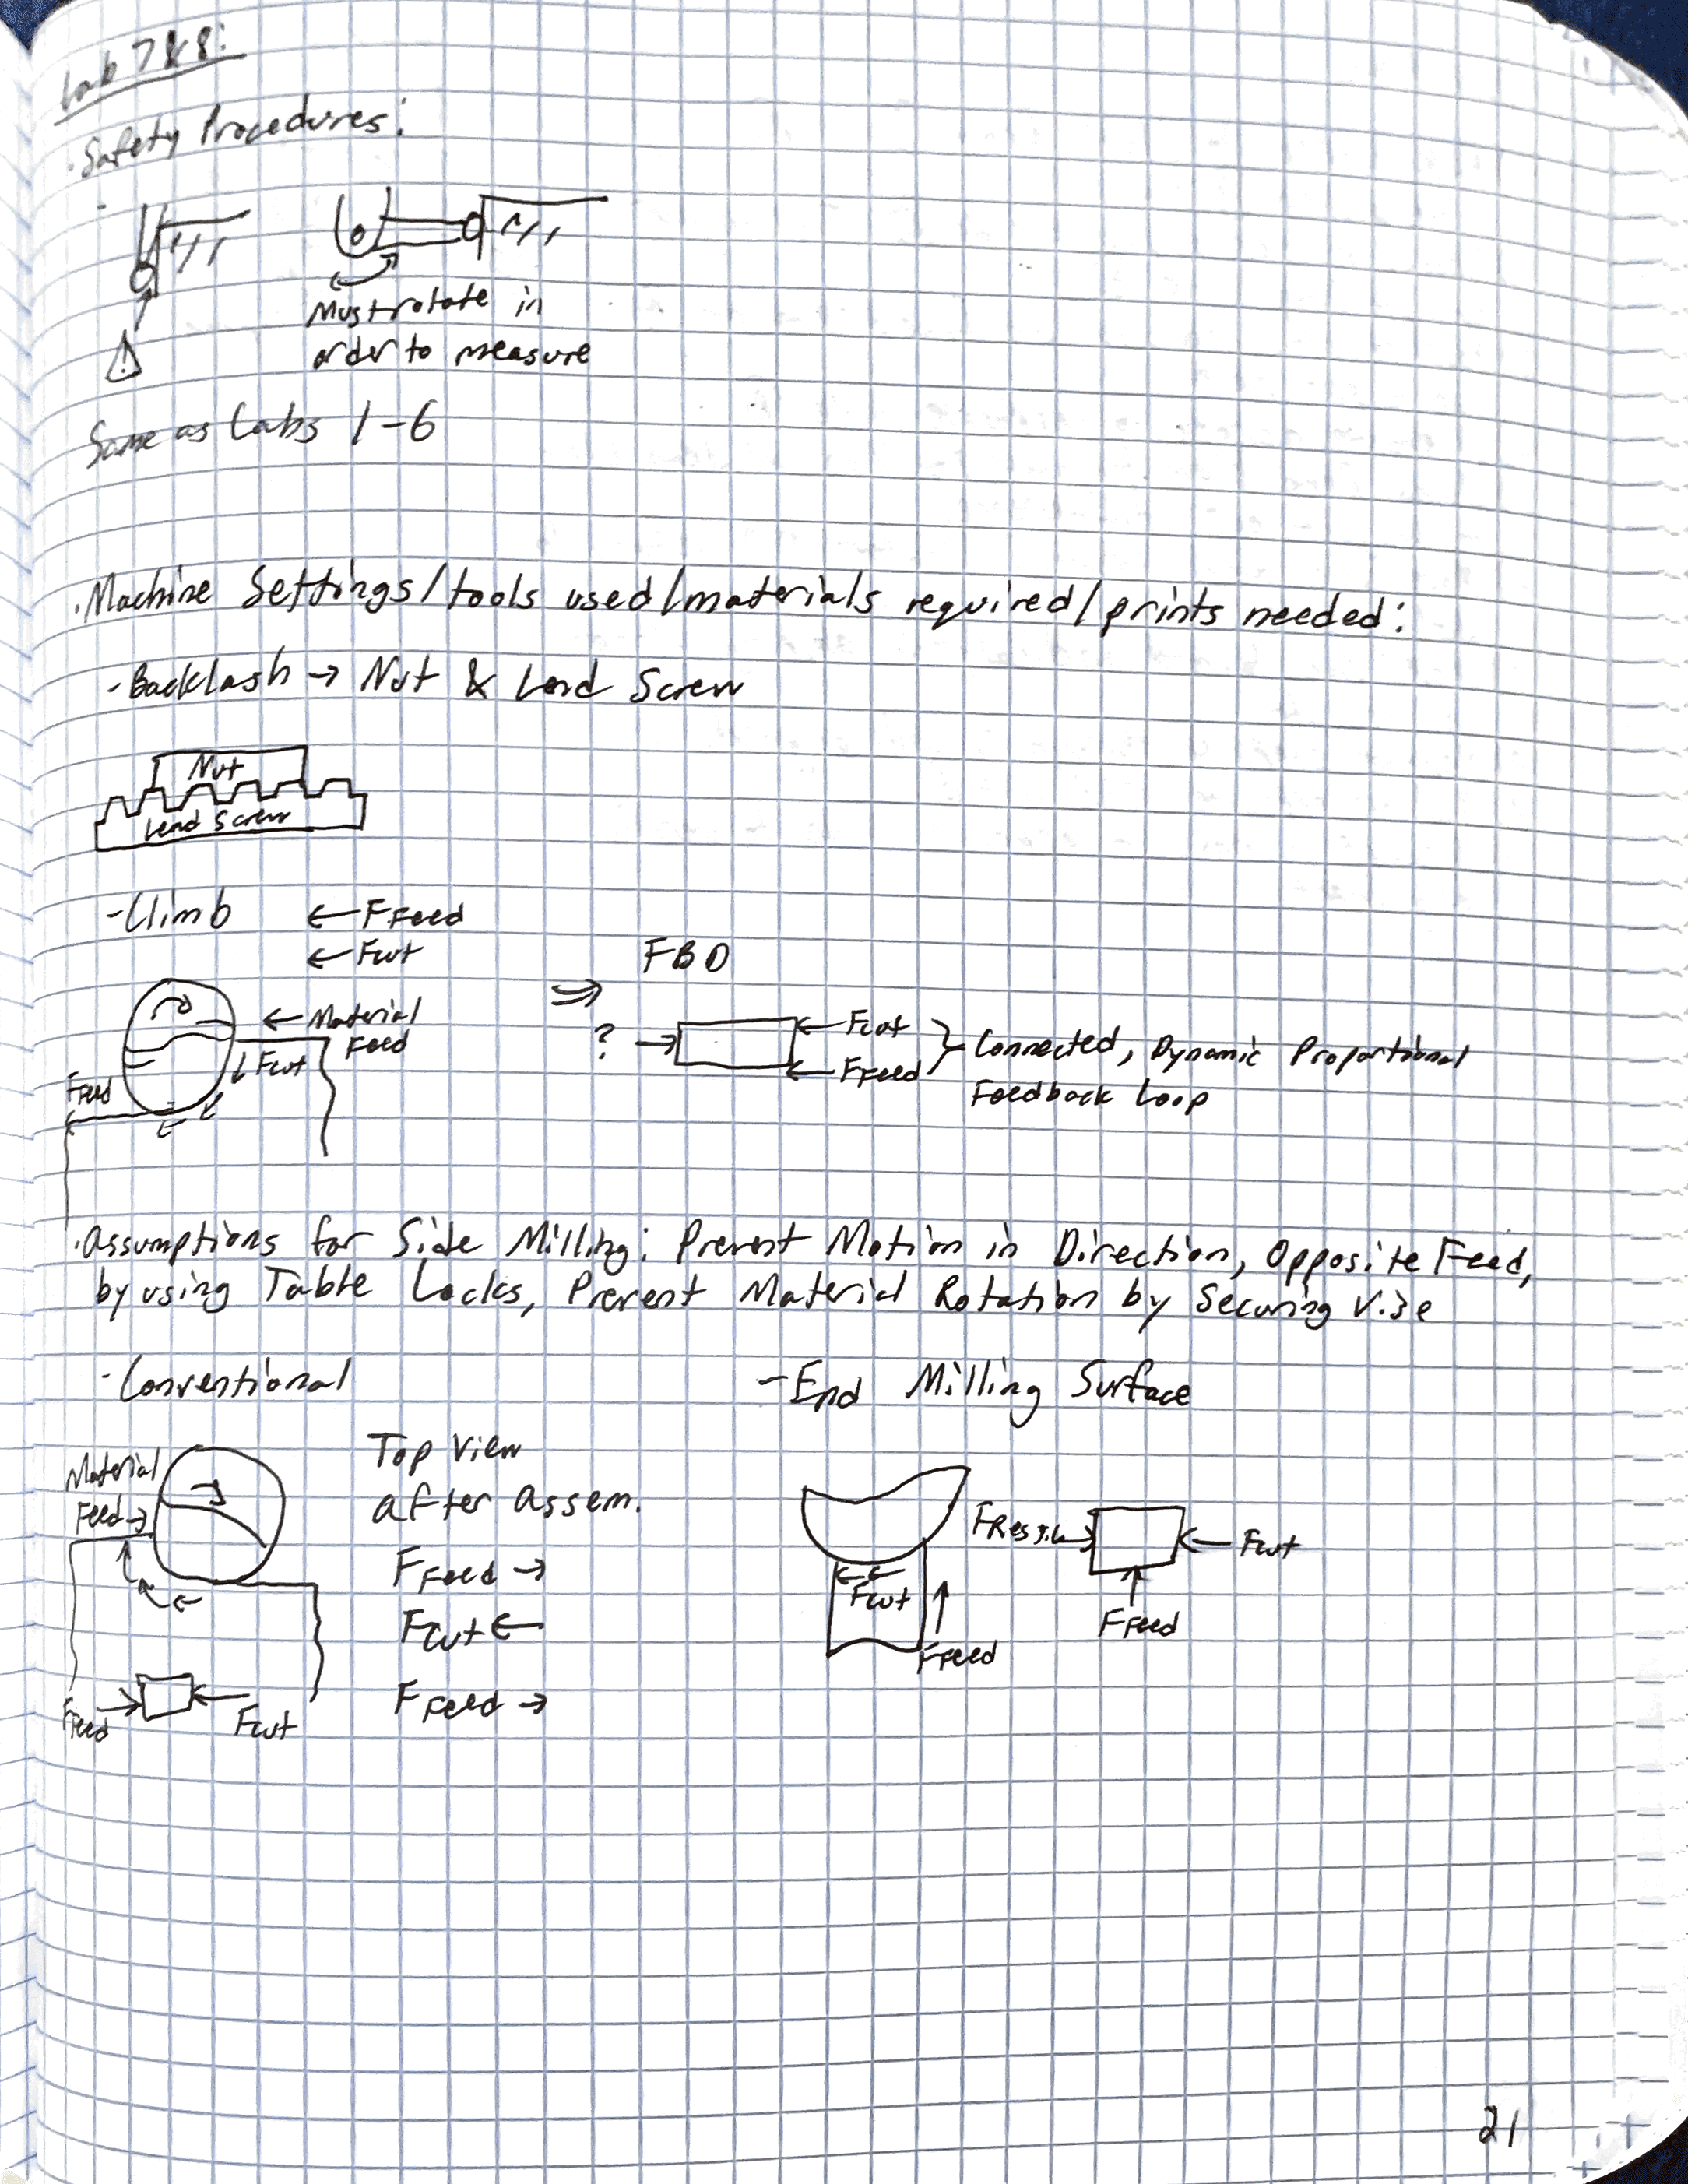 Lab 7&8:
· Safety Procedures:
Must rotate in
order to measure
Same as Labs 1-6
· Machine Settings/tools used/materials required/prints needed:
- Backlash → Nut & Lead Screw
Nut
Lead Screw
- Climb
← F Feed
← Fcut
FBD
← Material
Feed
↓ Fcut
F Feed
? →
← Fcut
← F Feed
} Connected, Dynamic Proportional
Feedback Loop
· Assumptions for Side Milling: Prevent Motion in Direction, Opposite Feed,
by using Table Locks, Prevent Material Rotation by Securing Vise
- Conventional
Material
Feed →
Top View
after assem.
F Feed →
Fcut ←
F Feed →
F Feed
Fcut
- End Milling Surface
Fcut
F Feed
← Fcut
F Feed
21